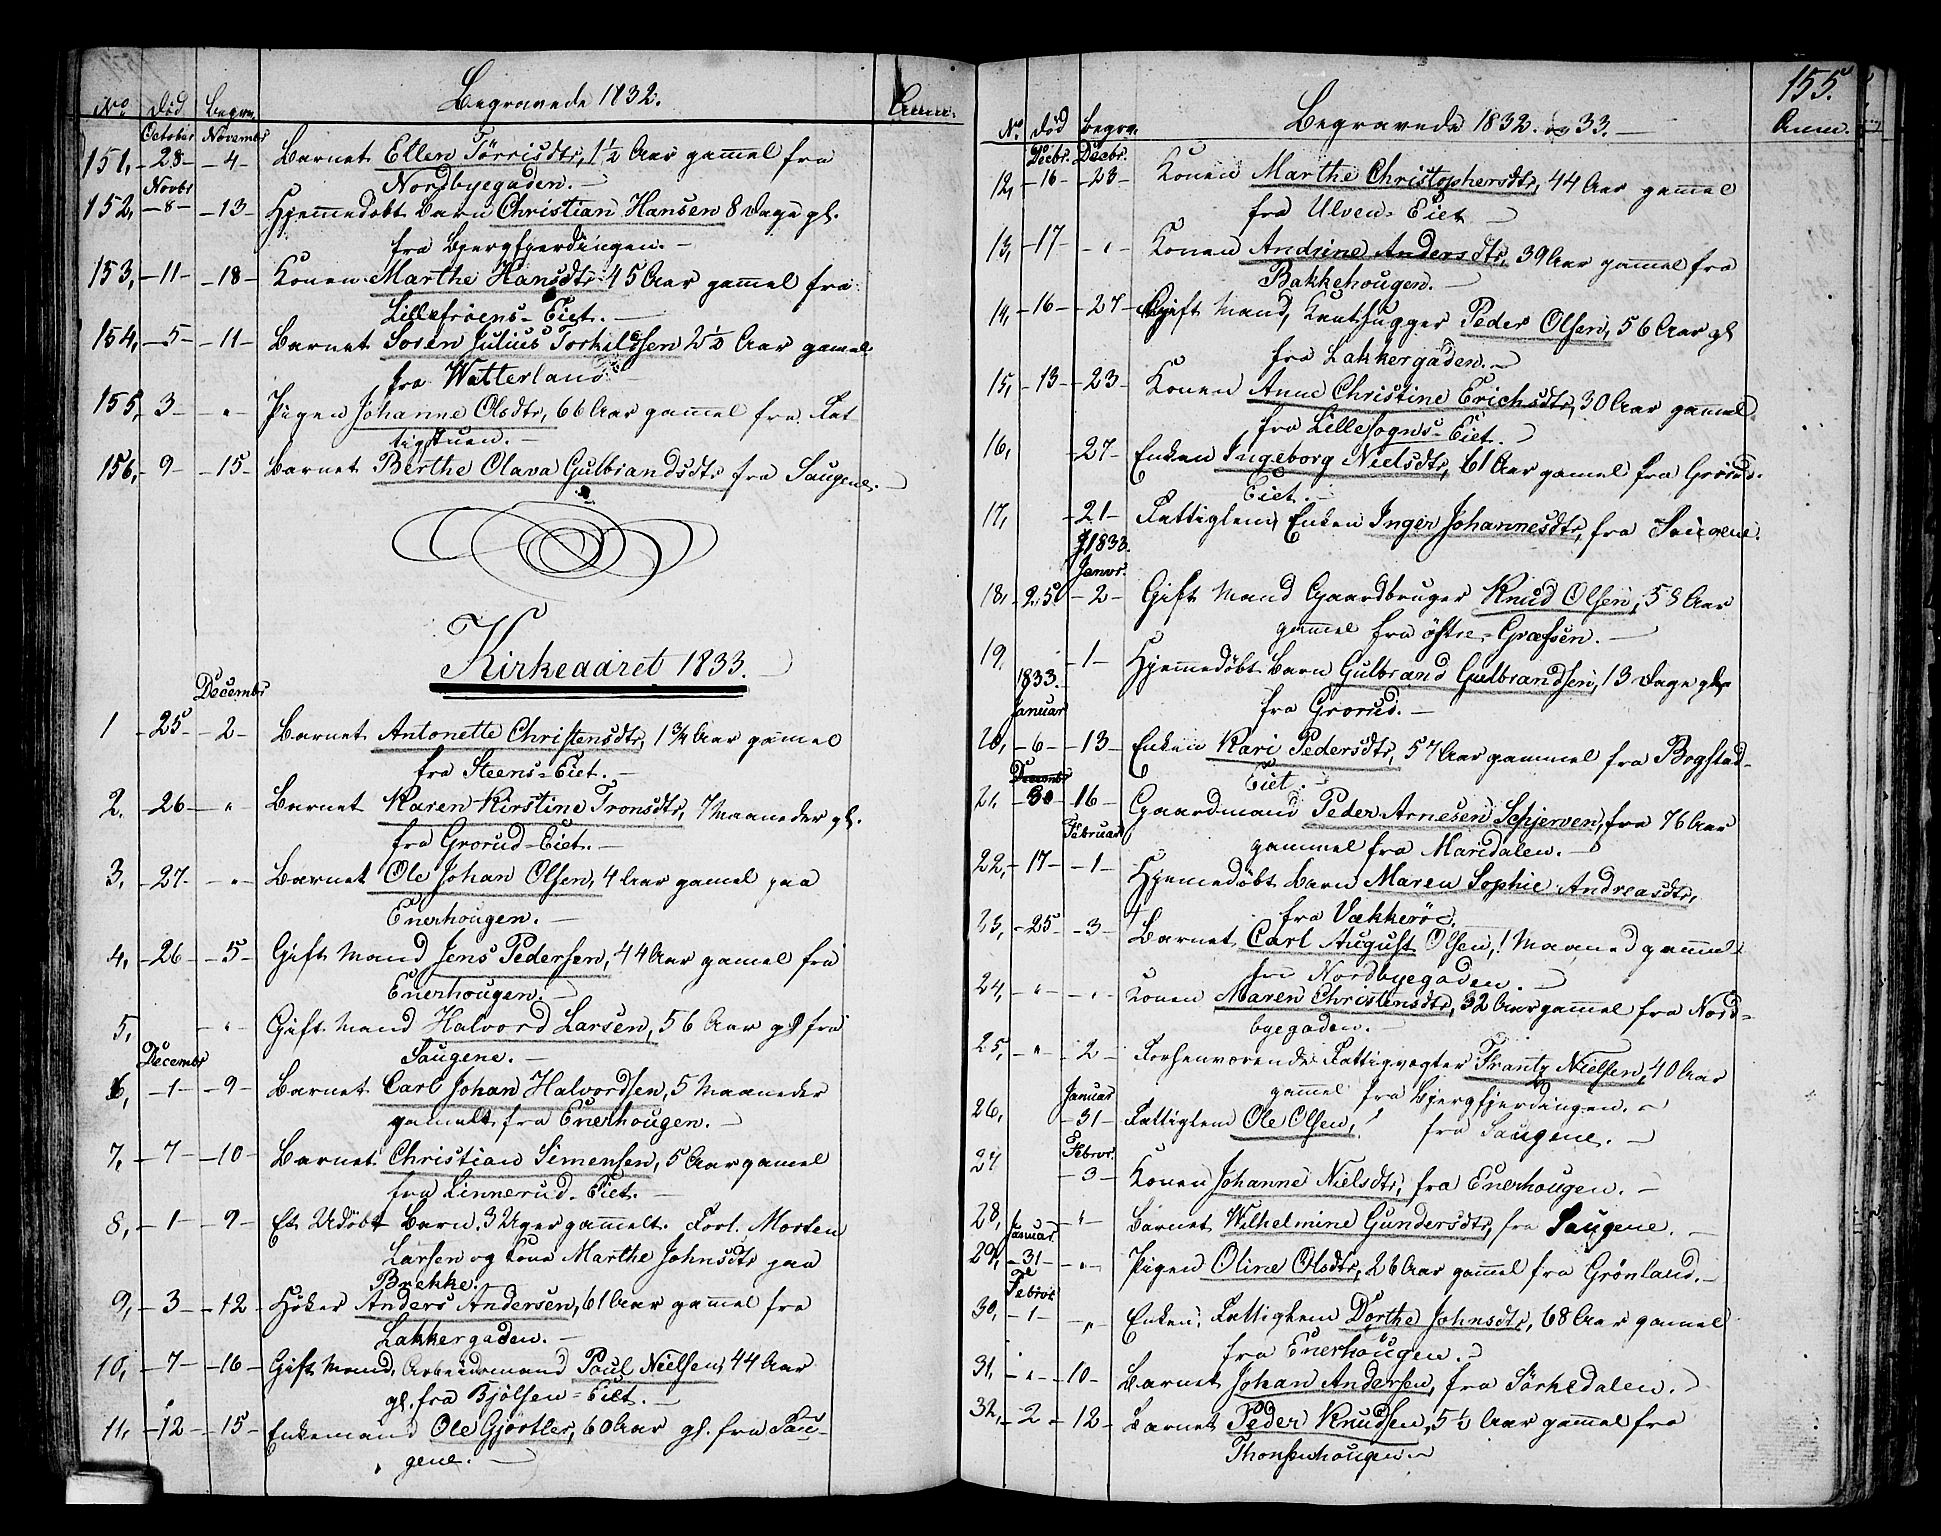 Begravede 1832.
No. Død Begrv. Anm.
October Novembr
151, -28- -4- Barnet Ellen Tørrisdtr, 1½ Aar gammel fra
Nordbyegaden. -
Novbr
152, -8- -13- Hjemmedøbt Barn Christian Hansen 8 Dage gl.
fra Bjergfjerdingen. -
153, -11- -18- Konen Marthe Hansdtr 45 Aar gammel fra
Lillefrøens-Eiet. -
154, -5- -11- Barnet Søren Julius Torkildsen 2½ Aar gamel
fra Watterland
155, 3- " - Pigen Johanne Olsdtr, 66 Aar gammel fra Fat-
tigstuen. -
156, -9- -15- Barnet Berthe Olava Gulbrandsdtr fra Saugene. -
Kirkeaaret 1833.
Decembr
1 -25- -2- Barnet Antonette Christensdtr, 1¾ Aar gamel
fra Steens-Eiet. -
2. -26- " - Barnet Karen Kirstine Tronsdtr, 7 Maaneder gl.
fra Grorud-Eiet. -
3, -27- -"- Barnet Ole Johan Olsen, 4 Aar gamel paa
Enerhougen. -
4, -26 -5- Gift Mand Jens Pedersen, 44 Aar gamel fra
Enerhougen. -
5, -"- Gift Mand Halvord Larsen, 56 Aar gl fra
Saugene. -
Decembr
6, -1- -9- Barnet Carl Johan Halvordsen, 5 Maaneder
gamelt fra Enerhougen. -
7, -7- -10- Barnet Christian Simensen, 5 Aar gamel
fra Linnerud-Eiet. -
8, -1- -9- Et Udøbt Barn. 3 Uger gammelt. Forl. Morten
Larsen og Kone Marthe Johnsdtr paa
Brekke. -
9, -3- -12- Høker Anders Andersen, 61 Aar gammel fra
Lakkergaden. -
10, -7- -16- Gift Mand, Arbeidsmand Paul Nielsen, 44 Aar
gl. fra Bjølsen-Eiet. -
11, -12- -15- Enkemand Ole Gjørtler, 60 Aar gl. fra Sau-
gene. -
155.
Begravede 1832. og 33. -
No. Død Begrv. Anm.
Decbr. Decbr.
12, -16- -23- Konen Marthe Christophersdtr, 44 Aar gamel
fra Ulven-Eiet -
13, -17- -"- Konen Andrine Andersdtr, 39 Aar gammel fra
Bakkehougen. -
14, -16- -27- Gift Mand, Knuthugger Peder Olsen, 56 Aar gl
fra Lakkergaden. -
15, -13- -23- Konen Anne Christine Erichsdtr, 30 Aar gamel
fra Lillesogns-Eiet. -
16, -27- Enken Ingeborg Nielsdtr, 61 Aar gamel fra Grorud-
Eiet. -
17, -21- Fattiglem, Enken Inger Johannesdtr, fra Saugene.
1833.
Janvr.
18, -25 -2- Gift Mand Gaardbruger Knud Olsen, 58 Aar
gammel fra østre-Grefsen. -
19, -1- Hjemmedøbt Barn Gulbrand Gulbrandsen, 13 Dage gl.
fra Grorud. -
1833.
Januar
20, -6- -13- Enken Kari Pedersdtr, 57 Aar gammel fra Bogstad-
Eiet.
Decembr
21, -30 -16- Gaardmand Peder Arnesen Schjerven, fra 76 Aar
gammel fra Maridalen. -
Februar
22, -17- -1- Hjemmedøbt Barn Maren Sophie Andreasdtr,
fra Vækkerøe.
23, -25- -3- Barnet Carl August Olsen, 1 Maaned gammel
fra Nordbyegaden. -
24, -"- -"- Konen Maren Christensdtr, 32 Aar gammel fra Nord-
byegaden. -
25, -"- -2- Forhenværende Fattigvogter Frantz Nielsen, 40 Aar
gammel fra Bjergfjerdingen. -
Januar
26, -31- Fattiglem Ole Olsen, fra Saugene. -
Febrvr.
27 -3- Konen Johanne Nielsdtr, fra Enerhougen. -
28, -"- Barnet Wilhelmine Gundersdtr, fra Saugene. -
Januar
29, -31- -"- Pigen Oline Olsdtr, 26 Aar gammel fra Grønland. -
Febrvr
30, -1- -"- Enken, Fattiglem Dorthe Johnsdtr, 68 Aar gammel
fra Enerhougen. -
31, -"- -10- Barnet Johan Andersen, fra Sørkedalen. -
32, -2- -12- Barnet Peder Knudsen, 5½ Aar gammel fra
Thonsenhougen. -